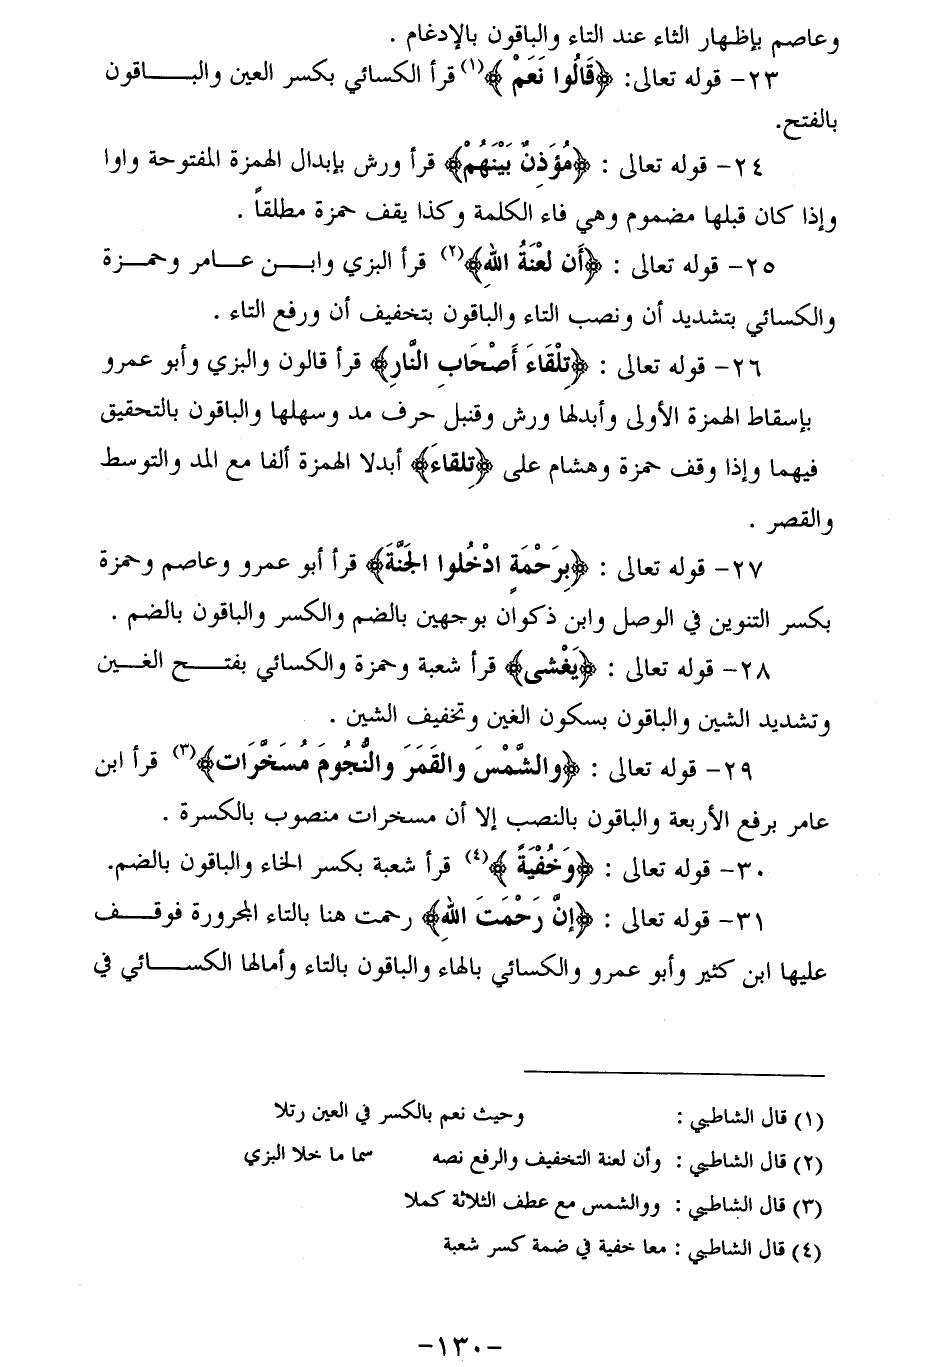 وعاصم بإظهار الثاء عند التاء والباقون بالإدغام .
٢٣- قوله تعالى: ﴿قَالُوا نَعَمْ ﴾(١) قرأ الكسائي بكسر العين والبـــاقون
بالفتح.
٢٤- قوله تعالى : ﴿مُؤَذِنٌ بَيْنَهُمْ﴾ قرأ ورش بإبدال الهمزة المفتوحة واوا
وإذا كان قبلها مضموم وهي فاء الكلمة وكذا يقف حمزة مطلقاً .
٢٥- قوله تعالى : ﴿أَن لعْنَةُ اللهِ﴾(٢) قرأ البزي وابـــن عـــامر وحمـــزة
والكسائي بتشديد أن ونصب التاء والباقون بتخفيف أن ورفع التاء .
٢٦- قوله تعالى : ﴿تِلْقَاءَ أَصْحَابِ النَّارِ﴾ قرأ قالون والبزي وأبو عمرو
بإسقاط الهمزة الأولى وأبدلها ورش وقنبل حرف مد وسهلها والباقون بالتحقيق
فيهما وإذا وقف حمزة وهشام على ﴿تِلقاءَ﴾ أبدلا الهمزة ألفا مع المد والتوسط
والقصر .
٢٧- قوله تعالى : ﴿بِرَحْمَةٍ ادْخُلوا الجَنَّةَ﴾ قرأ أبو عمرو وعاصم وحمزة
بكسر التنوين في الوصل وابن ذكوان بوجهين بالضم والكسر والباقون بالضم .
٢٨- قوله تعالى : ﴿يَغْشى﴾ قرأ شعبة وحمزة والكسائي بفتـــح الغـــين
وتشديد الشين والباقون بسكون الغين وتخفيف الشين .
٢٩- قوله تعالى : ﴿والشَّمْسَ والقَمَرَ والنُّجُومَ مُسَخَّرَات﴾(٣) قرأ ابن
عامر برفع الأربعة والباقون بالنصب إلا أن مسخرات منصوب بالكسرة .
٣٠- قوله تعالى : ﴿وَخُفْيَةً ﴾(٤) قرأ شعبة بكسر الخاء والباقون بالضم.
٣١- قوله تعالى : ﴿إنَّ رَحْمَتَ اللهِ﴾ رحمت هنا بالتاء المجرورة فوقـــف
عليها ابن كثير وأبو عمرو والكسائي بالهاء والباقون بالتاء وأمالها الكســـائي في
(١) قال الشاطبي : وحيث نعم بالكسر في العين رتلا
(٢) قال الشاطبي : وأن لعنة التخفيف والرفع نصه سما ما خلا البزي
(٣) قال الشاطبي : ووالشمس مع عطف الثلاثة كملا
(٤) قال الشاطبي : معا خفية في ضمة كسر شعبة
-١٣٠-